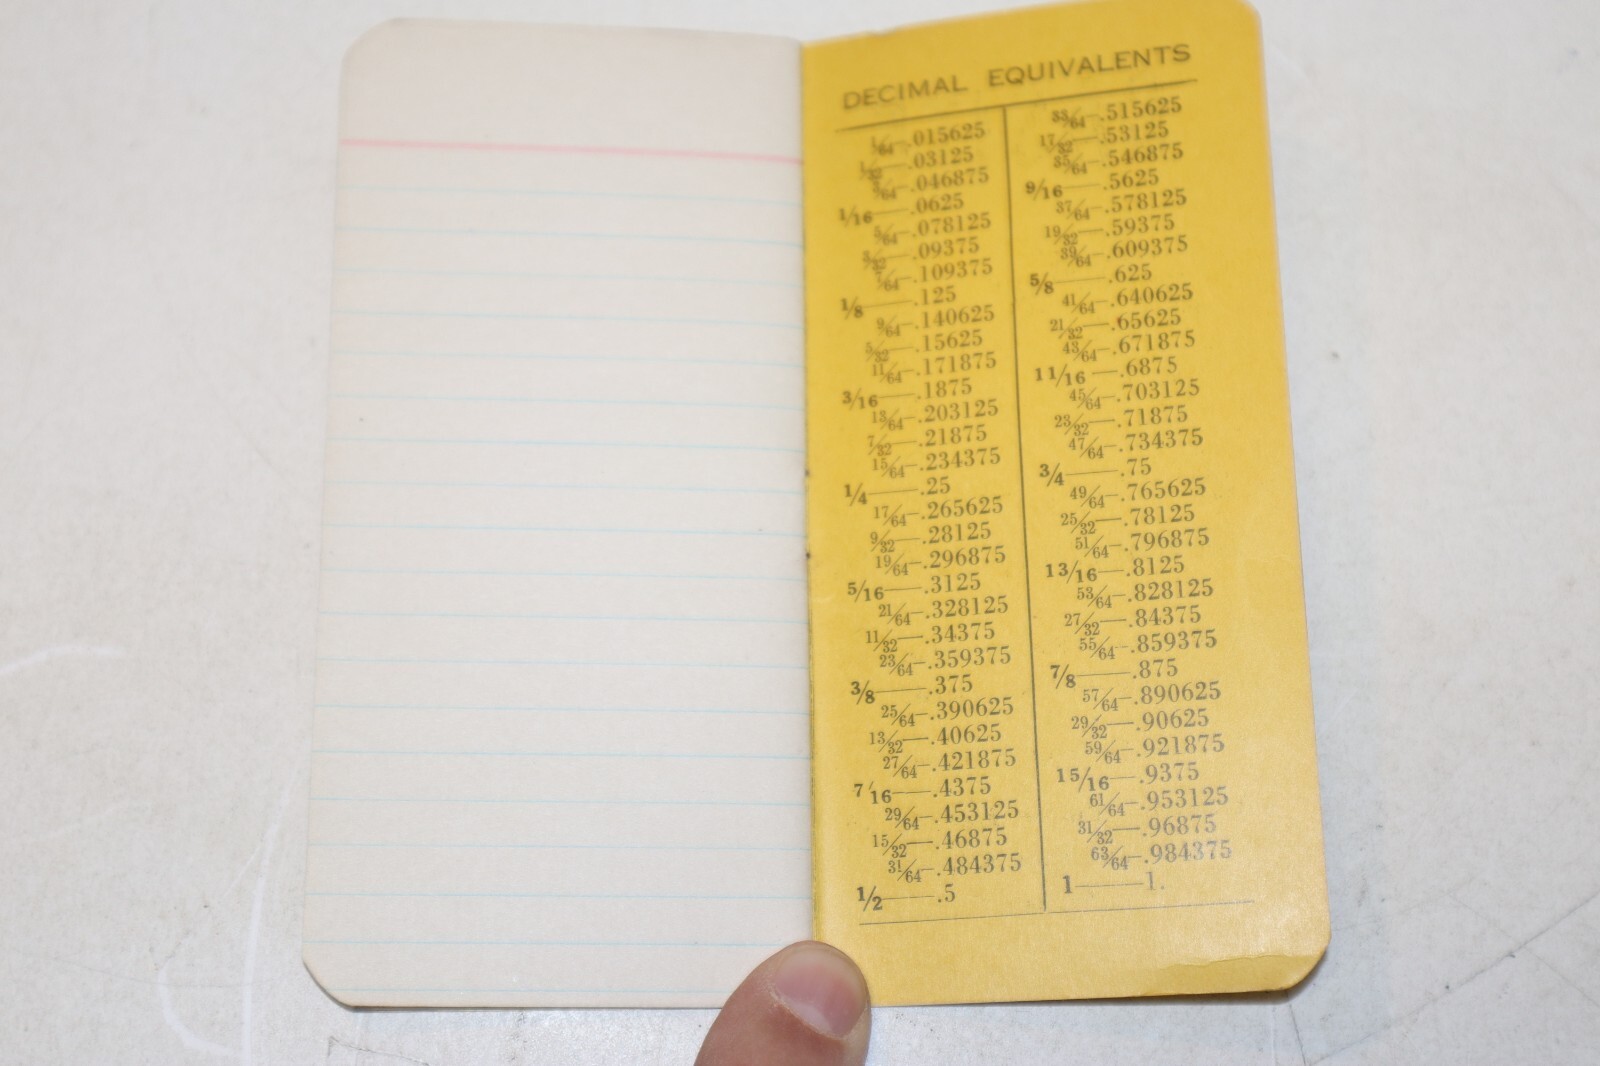 DECIMAL EQUIVALENTS
1/64—.015625
1/32—.03125
3/64—.046875
1/16—.0625
5/64—.078125
3/32—.09375
7/64—.109375
1/8—.125
9/64—.140625
5/32—.15625
11/64—.171875
3/16—.1875
13/64—.203125
7/32—.21875
15/64—.234375
1/4—.25
17/64—.265625
9/32—.28125
19/64—.296875
5/16—.3125
21/64—.328125
11/32—.34375
23/64—.359375
3/8—.375
25/64—.390625
13/32—.40625
27/64—.421875
7/16—.4375
29/64—.453125
15/32—.46875
31/64—.484375
1/2—.5
33/64—.515625
17/32—.53125
35/64—.546875
9/16—.5625
37/64—.578125
19/32—.59375
39/64—.609375
5/8—.625
41/64—.640625
21/32—.65625
43/64—.671875
11/16—.6875
45/64—.703125
23/32—.71875
47/64—.734375
3/4—.75
49/64—.765625
25/32—.78125
51/64—.796875
13/16—.8125
53/64—.828125
27/32—.84375
55/64—.859375
7/8—.875
57/64—.890625
29/32—.90625
59/64—.921875
15/16—.9375
61/64—.953125
31/32—.96875
63/64—.984375
1—1.